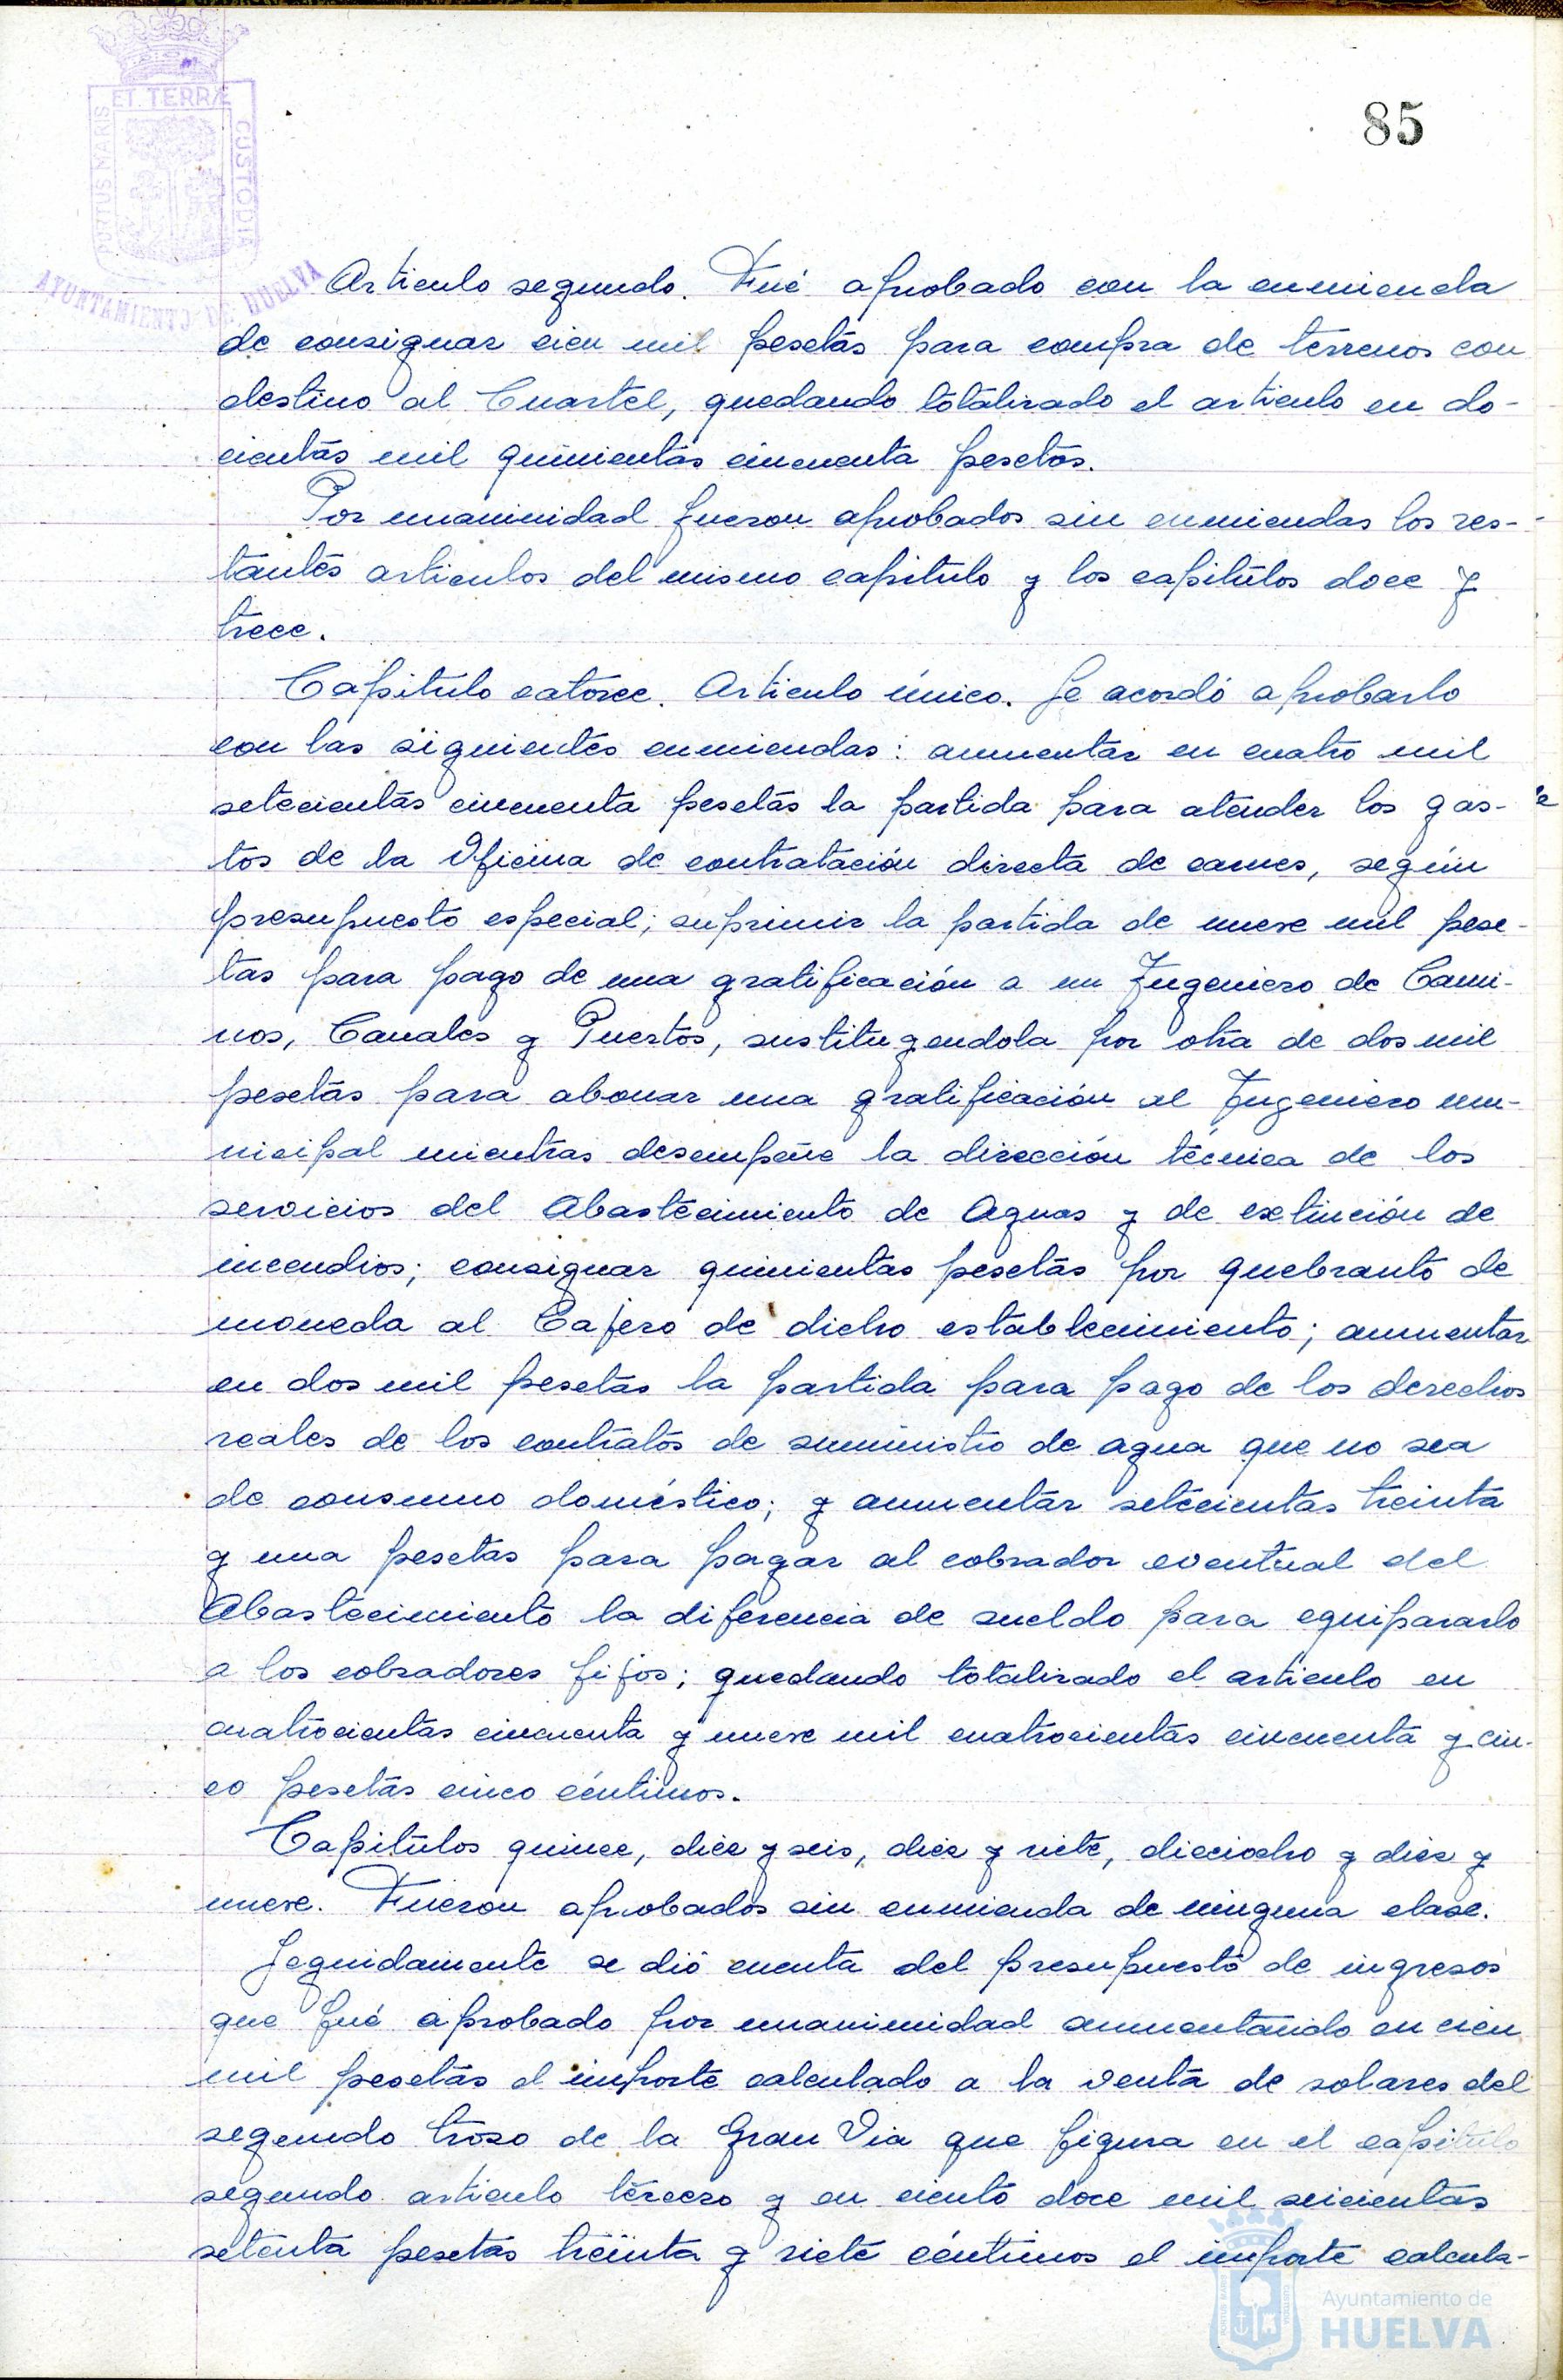 PORTUS MARIS ET TERRÆ CUSTODIA
AYUNTAMIENTO DE HUELVA
85
Articulo segundo. Fué aprobado con la enmienda
de consignar cien mil pesetas para compra de terrenos con
destino al Cuartel, quedando totalizado el articulo en do-
cientas mil quinientas cincuenta pesetas.
Por unanimidad fueron aprobados sin enmiendas los res-
tantes articulos del mismo capitulo y los capitulos doce y
trece.
Capitulo catorce. Articulo único. Se acordó aprobarlo
con las siguientes enmiendas: aumentar en cuatro mil
setecientas cincuenta pesetas la partida para atender los gas-
tos de la Oficina de contratación directa de carnes, según
presupuesto especial; suprimir la partida de nueve mil pese-
tas para pago de una gratificación a un Ingeniero de Cami-
nos, Canales y Puertos, sustituyendola por otra de dos mil
pesetas para abonar una gratificación al Ingeniero mu-
nicipal mientras desempeñe la dirección técnica de los
servicios del Abastecimiento de Aguas y de extinción de
incendios; consignar quinientas pesetas por quebranto de
moneda al Cajero de dicho establecimiento; aumentar
en dos mil pesetas la partida para pago de los derechos
reales de los contratos de suministro de agua que no sea
de consumo doméstico; y aumentar setecientas treinta
y una pesetas para pagar al cobrador eventual del
Abastecimiento la diferencia de sueldo para equipararlo
a los cobradores fijos; quedando totalizado el articulo en
cuatrocientas cincuenta y nueve mil cuatrocientas cincuenta y cin-
co pesetas cinco céntimos.
Capitulos quince, diez y seis, diez y siete, dieciocho y diez y
nueve. Fueron aprobados sin enmienda de ninguna clase.
Seguidamente se dió cuenta del presupuesto de ingresos
que fué aprobado por unanimidad aumentando en cien
mil pesetas el importe calculado a la venta de solares del
segundo trozo de la Gran Via que figura en el capitulo
segundo articulo tercero y en ciento doce mil seicientas
setenta pesetas treinta y siete céntimos el importe calcula-
Ayuntamiento de
HUELVA